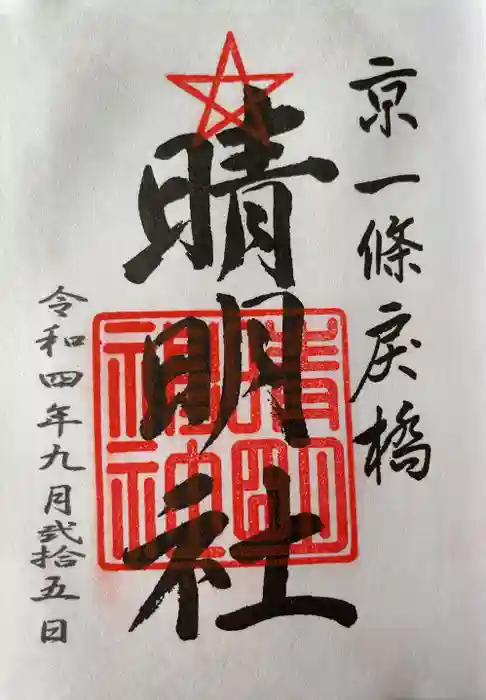 京一條戻橋
晴明社
晴明
神社
令和四年九月弐拾五日